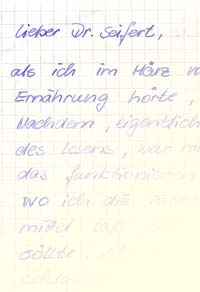 Lieber Dr. Seifert,
als ich im März
Ernährung hörte,
Nachdem, eigentlich
des Lesens, war
das funktionieren
wo ich die
mittel
sollte